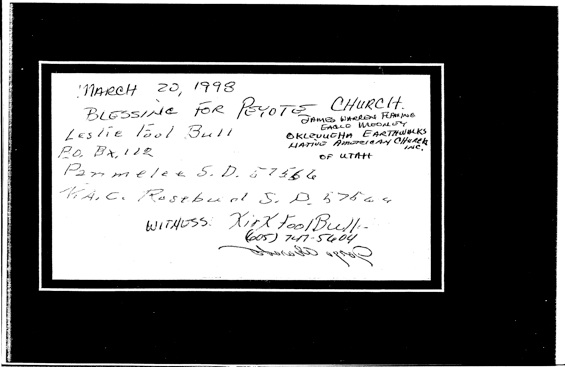 MARCH 20, 1998
BLESSING FOR PEYOTE CHURCH.
JAMES WARREN FLAMING
EAGLE MOONEY
OKLEVUEHA EARTHWALKS
NATIVE AMERICAN CHURCH
INC.
OF UTAH
Leslie Fool Bull
P.O. Bx, 112
Parmelee S. D. 57566
N.A.C. Rosebud S. D.
WITNESS: Fool Bull
(605) 747-5604